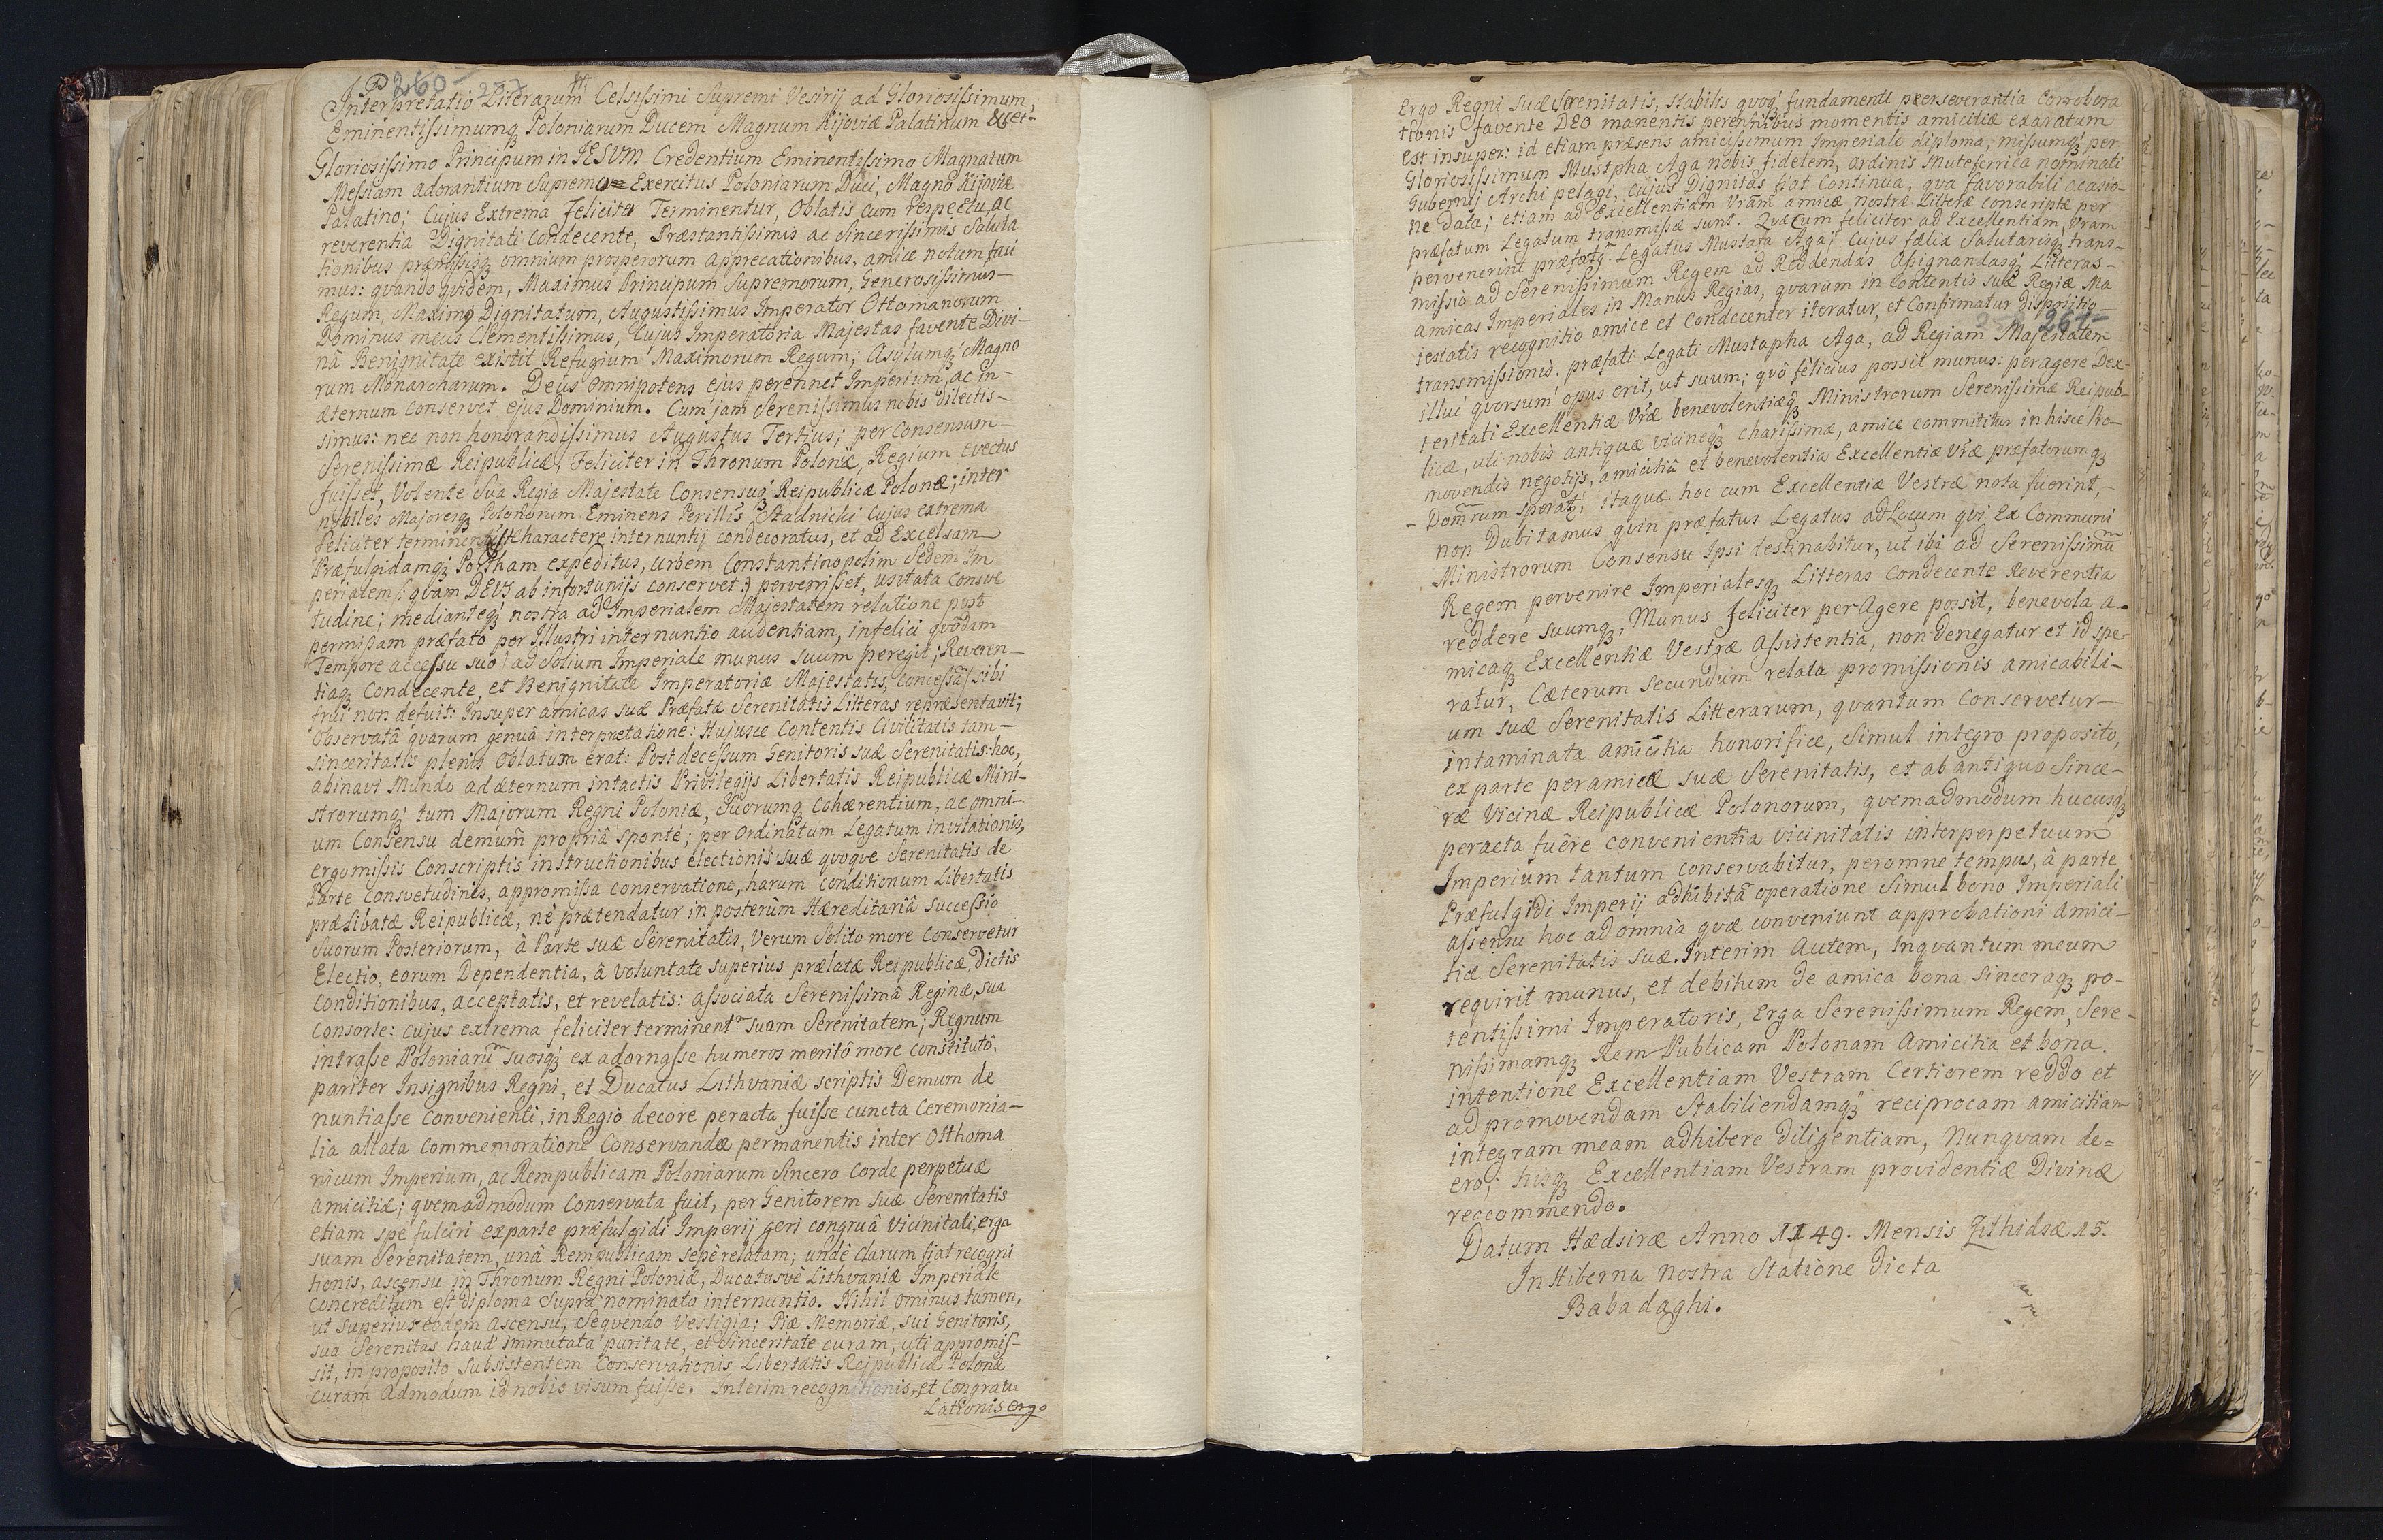 260 257
Interpretatio Literarum Celsissimi Supremi Vesirij ad Gloriosissimum,
Eminentissimumq3 Poloniarum Ducem Magnum Kijoviæ Palatinum
Gloriosissimo Principum in IESUM Credentium Eminentissimo Magnatum
Messiam adorantium Supremo Exercitus Poloniarum Duci, Magno Kijoviæ
Palatino; Cujus Extrema feliciter Terminentur, Oblatis cum respectu, ac
reverentia Dignitati Condecente, Præstantissimis ac Sincerissimis Saluta
tionibus præmissisq3 omnium prosperorum Apprecationibus, amice notum faci
mus: quando quidem, Maximus Principum Supremorum, Generosissimus
Regum, Maximq Dignitatum, Augustissimus Imperator Ottomanorum
Dominus meus Clementissimus, Cujus Imperatoria Majestas favente Divi-
nâ Benignitate existit Refugium Maximorum Regum; Asylumq3 Magno
rum Monarcharum. Deus Omnipotens ejus perennet Imperium, ac in-
æternum Conservet ejus Dominium. Cum jam Serenissimus nobis dilectis-
simus: nec non honorandissimus Augustus Tertius; per Consensum
Serenissimæ Reipublicæ, Feliciter in Thronum Poloniæ, Regium evectus
fuisset, Volente Sua Regia Majestate Consensuq3 Reipublicæ Polonæ; inter
nobiles Majoresq3 Polonorum Eminens Perillis Stadnicki Cujus extrema
feliciter terminentur Charactere internuntij condecoratus, et ad Excelsam
Præfulgidamq3 Portham expeditus, urbem Constantinopolim Sedem Im
perialem (: quam DEUS ab infortunijs conservet :) pervenisset, usitata Consve
tudine; medianteq3 nostra ad Imperialem Majestatem relatione post
permissam præfato per Illustri internuntio audentiam, infelici quodam
Tempore accessu suo ad Solium Imperiale munus suum peregit; Reveren-
tiaq3 Condecente, et Benignitate Imperatoriæ Majestatis, concessâ sibi
frui non defuit: Insuper amicas suæ Præfatæ Serenitatis Litteras repræsentavit;
Observatâ quarum genuâ interpretatione: Hujusce Contentis Civilitatis tam
sinceritatis plenis Oblatum erat: Post decessum Genitoris suæ Serenitatis: hoc,
abinavi Mundo ad æternum intactis Privilegijs Libertatis Reipublicæ Mini-
strorumq3 tum Majorum Regni Poloniæ, Suorumq3 Cohærentium, ac omni-
um Consensu demum propriâ sponte; per Ordinatum Legatum invitationis,
ergo missis Conscriptis instructionibus electionis suæ quoque Serenitatis de
Parte consvetudines, appromissa conservatione, harum conditionum Libertatis
prælibatæ Reipublicæ, nè prætendatur in posterùm Hæreditariâ successio
Suorum Posteriorum, à Parte suæ Serenitatis, Verum Solito more Conservetur
Electio, eorum Dependentia, â voluntate superius prælatæ Reipublicæ, dictis
Conditionibus, acceptatis, et revelatis: associata Serenissimâ Reginæ, sua
Consorte: cujus extrema feliciter terminentr suam Serenitatem; Regnum
intrasse Poloniarum suosq3 exadornasse humeros meritô more Constitutô.
pariter Insignibus Regni, et Ducatus Lithvaniæ scriptis Demum de
nuntiasse Convenienti, in Regio decore peracta fuisse cuncta Ceremonia-
lia allata Commemoratione Conservandæ permanentis inter Otthoma
nicum Imperium, ac Rempublicam Poloniarum Sincero Corde perpetuæ
Amicitiæ; quemadmodum Conservata fuit, per Genitorem suæ Serenitatis
etiam spe fulciri exparte præfulgidi Imperij geri congruâ vicinitati, erga
suam Serenitatem, unà Rempublicam sepè relatam; undè clarum fiat recogni
tionis, ascensu in Thronum Regni Poloniæ, Ducatusvè Lithvaniæ Imperiale
Concreditum est diploma Supra nominato internuntio. Nihil ominus tamen,
ut Superius eodem ascensu, Sequendo Vestigia; Piæ Memoriæ, sui Genitoris,
sua Serenitas haud immutata puritate, et Sinceritate curam, uti appromis-
sit, in proposito Subsistentem Conservationis Libertatis Reipublicæ Polonæ
Curam Admodum id nobis visum fuisse. Interim recognitionis, et Congratu
Lationis ergo
ergo Regni suæ Serenitatis, stabilis quoq3 fundamenti perseverantia Corrobora
tionis favente DEO manentis perennibus momentis amicitiæ exaratum
est insuper: id etiam præsens amicissimum Imperiale diploma, missumq3 per
Gloriosissimum Mustpha Aga nobis fidelem, ordinis Muteferrica nominati
Gubernij Archi pelagi, Cujus Dignitas fiat Continua, qua favorabili ocasio-
ne data; etiam ad Excellentiam Vram amicæ nostræ Litteræ conscriptæ per
præfatum Legatum transmissæ sunt. Quæ Cum feliciter ad Excellentiam, Vram
pervenerint præfatq Legatus Mustafa Aga; Cujus fælix Salutarisq3 trans-
missio ad Serenissimum Regem ad Reddendas Assignandasq3 Litteras
amicas Imperiales in Manus Regias, quarum in Contentis suæ Regiæ Ma
iestatis recognitio amice et Condecenter iteratur, et Confirmatur Dispositio
261
transmissionis. præfati Legati Mustapha Aga, ad Regiam Majestatem
illuc quorsum opus erit, ut suum; quô felicius possit munus: peragere Dex-
teritati Excellentiæ Vræ benevolentiæq3 Ministrorum Serenissimæ Reipub-
licæ, uti nobis antiquæ vicineq3 charissimæ, amice commititur in hisce Pro-
movendis negotijs, amicitiâ et benevolentia Excellentiæ Vræ præfatorumq3
Domrum Speratr; itaquæ hoc cum Excellentiæ Vestræ nota fuerint,
non Dubitamus quin præfatus Legatus ad Locum qui Ex Communi
Ministrorum Consensu Ipsi destinabitur, ut ibi ad Serenissimum
Regem pervenire Imperialesq3 Litteras Condecente Reverentia
reddere suumq3, Munus feliciter per Agere possit, benevola a-
micaq3 Excellentiæ Vestræ Assistentia, non denegatur et id spe-
ratur, Cæterum secundùm relata promissionis amicabili-
um suæ Serenitatis Litterarum, quantum Conservetur
intaminata amicitia honorificæ, Simul integro proposito,
ex parte peramicæ suæ Serenitatis, et ab antiquo Since-
ræ Vicinæ Reipublicæ Polonorum, quemadmodum hucusq3
peracta fuêre convenientia vicinitatis inter perpetuum
Imperium tantum conservabitur, peromne tempus, à parte
Præfulgidi Imperij adhibitâ operatione Simul bono Imperiali
assensu hoc ad omnia quæ conveniunt approbationi Amici-
tiæ Serenitatis suæ. Interim Autem, Inquantum meum
requirit munus, et debitum de amica bona Sinceraq3 po-
tentissimi Imperatoris, Erga Serenissimum Regem, Sere-
nissimamq3 Rem Publicam Polonam Amicitia et bona
intentione Excellentiam Vestram Certiorem reddo et
ad promovendam Stabiliendamq3 reciprocam amicitiam
integram meam adhibere diligentiam, Nunquam de=
ero; hisq3 Excellentiam Vestram providentiæ Divinæ
reccommendo.
Datum Hædsiræ Anno 1149. Mensis Zithidsæ 15.
In Hiberna Nostra Statione dicta
Babadaghi.